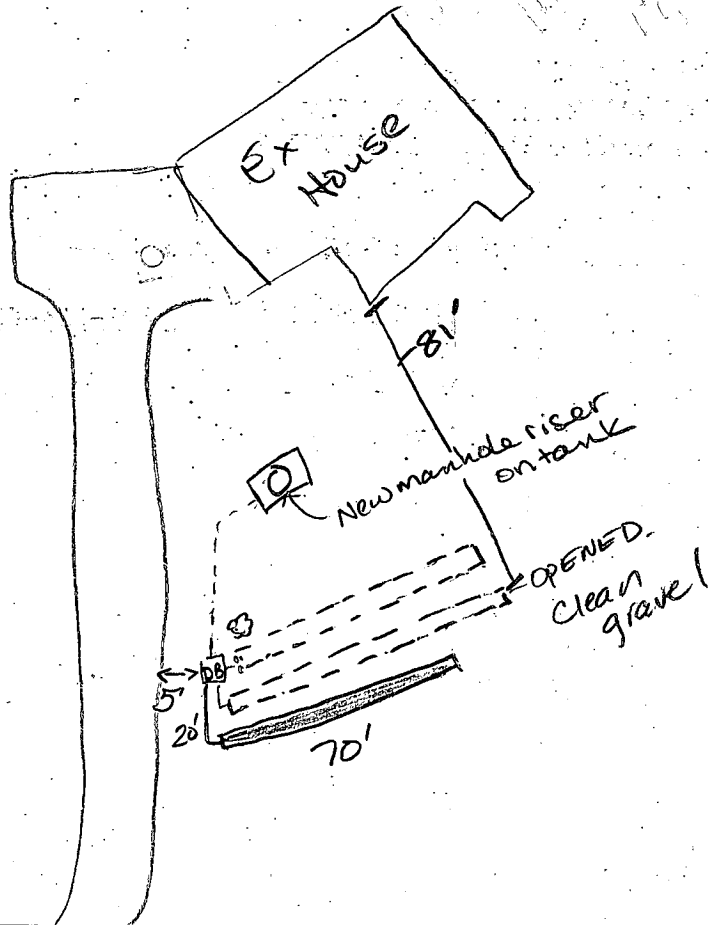 Ex
House
81'
New manhole riser
on tank
OPENED.
Clean
gravel
DB
5'
20'
70'